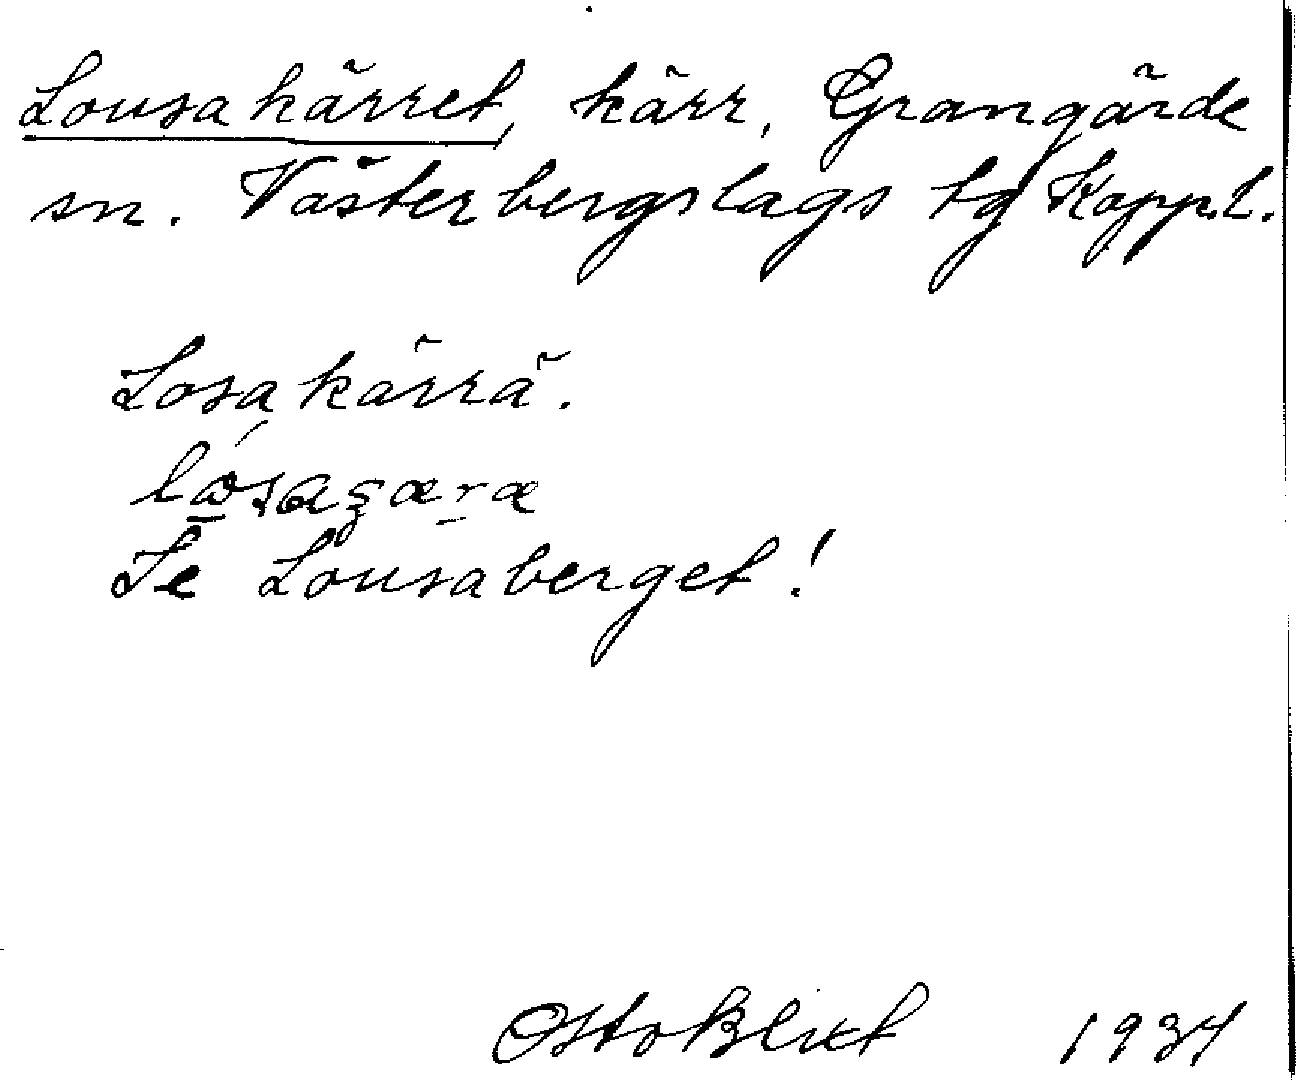 Lousakärret, kärr, Grangärde
sn. Västerbergslags tg Kopp.l.
Losakärrä.
Se Lousaberget!
Otto Blixt 1934